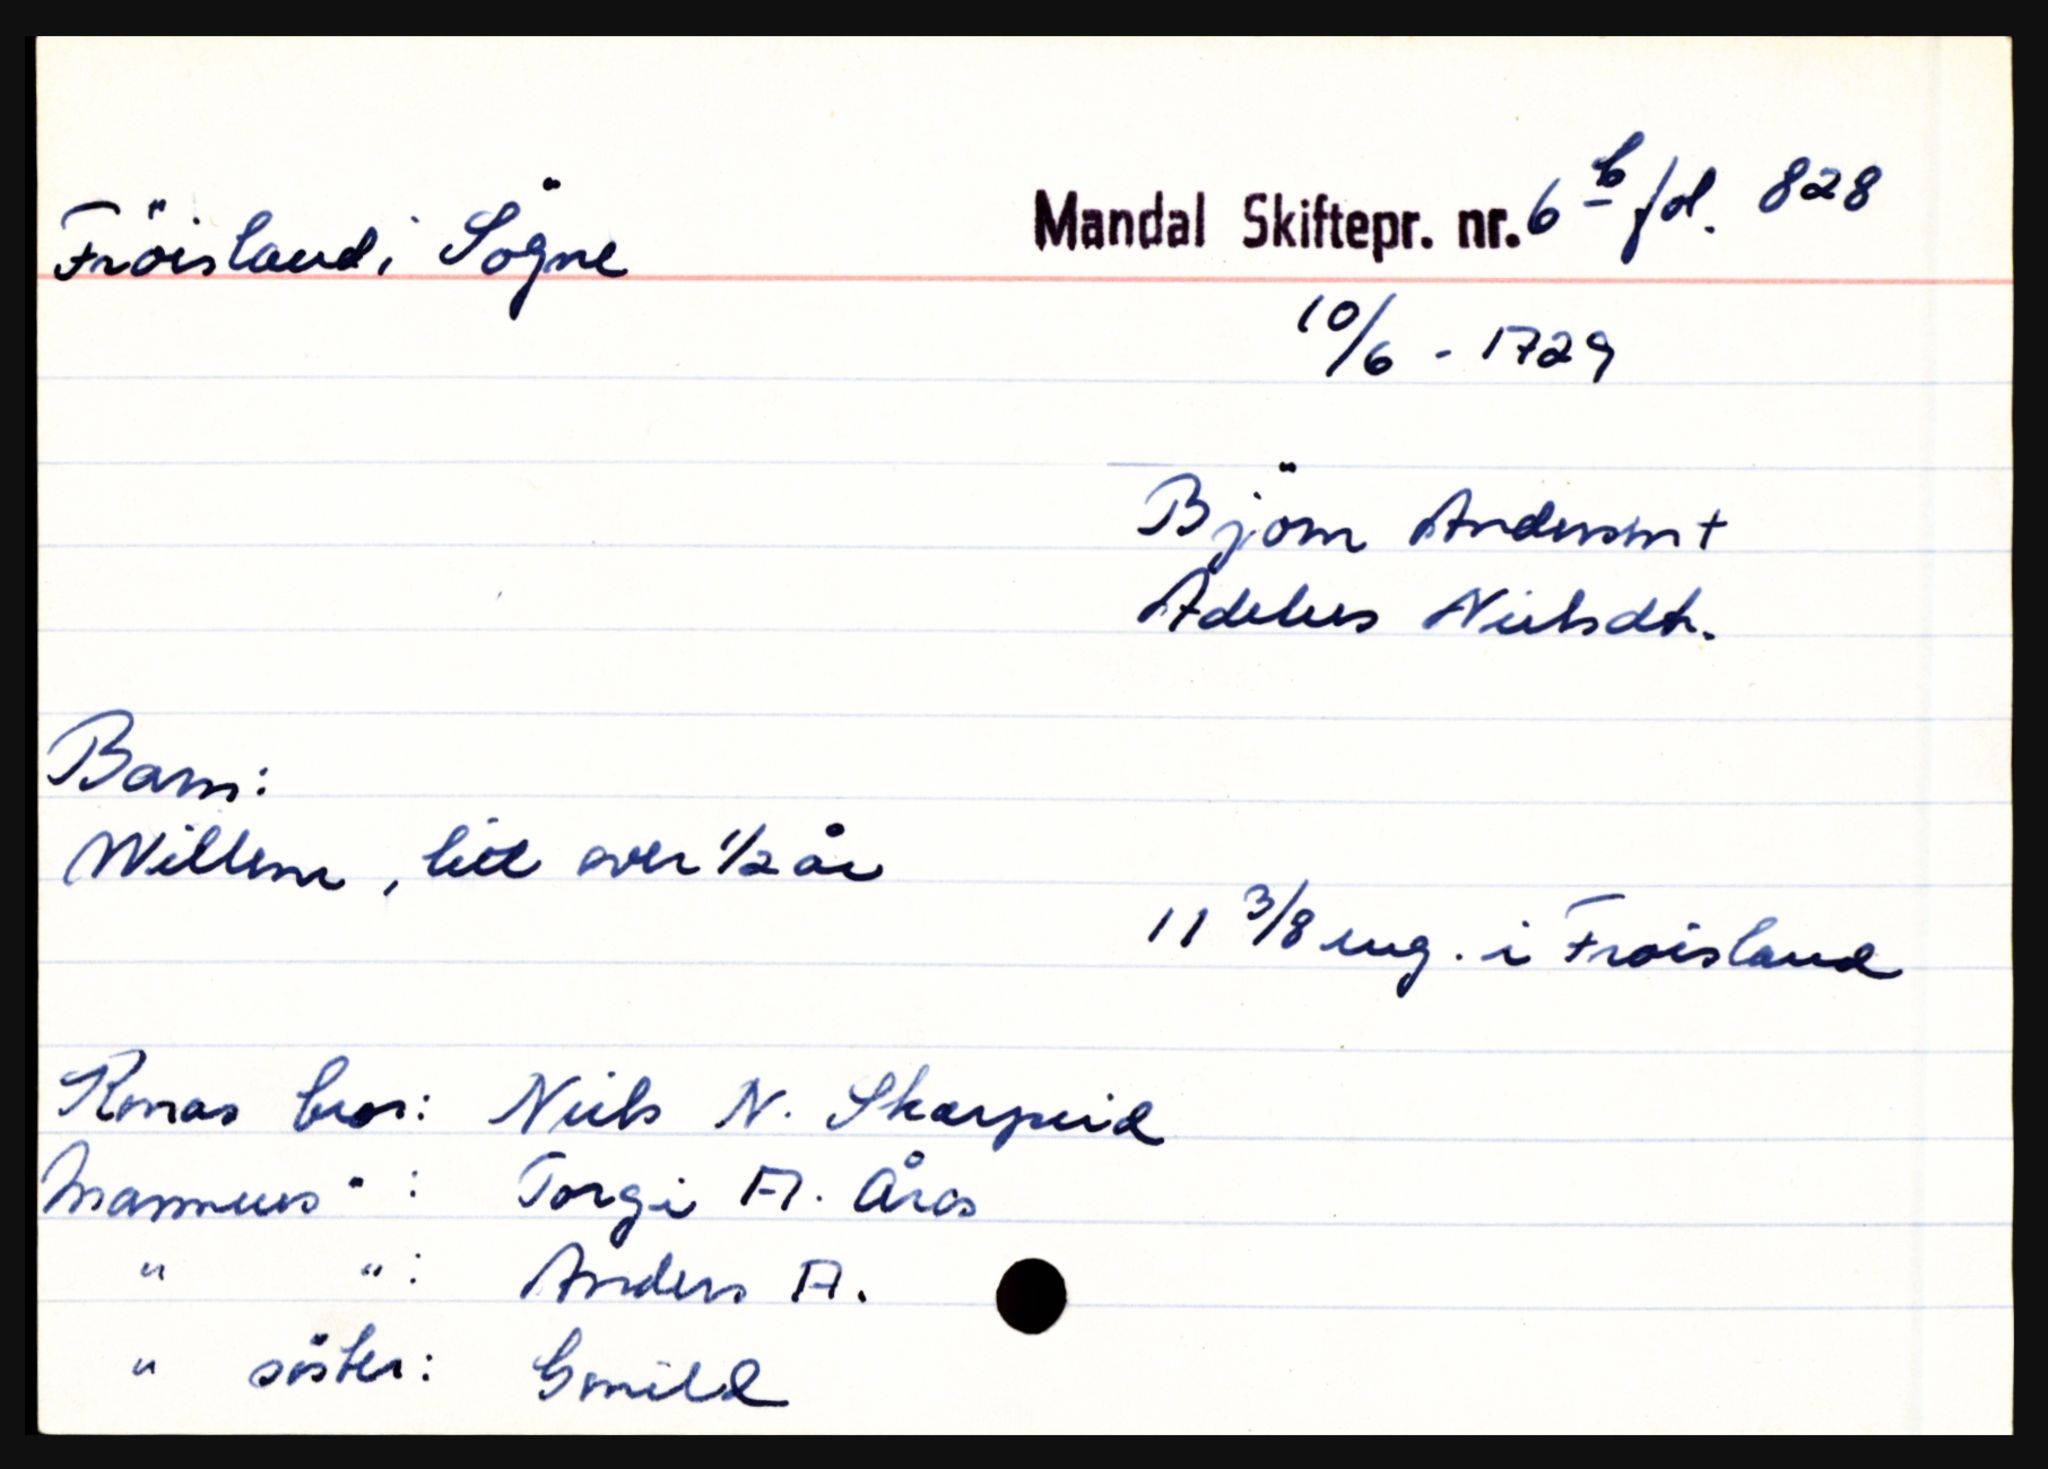 Fröisland i Sögne
Mandal Skiftepr. nr. 6 b fol. 828
10/6 - 1729
Björn Andersen +
Adelus Nielsdtr.
Barn:
Willem, litt over 1/2 år
11 3/8 eng. i Fröisland
Konas bror: Niels N. Skarpeid
Mannens " : Torgi A. Åros
" " : Anders A.
" söster: Gunild